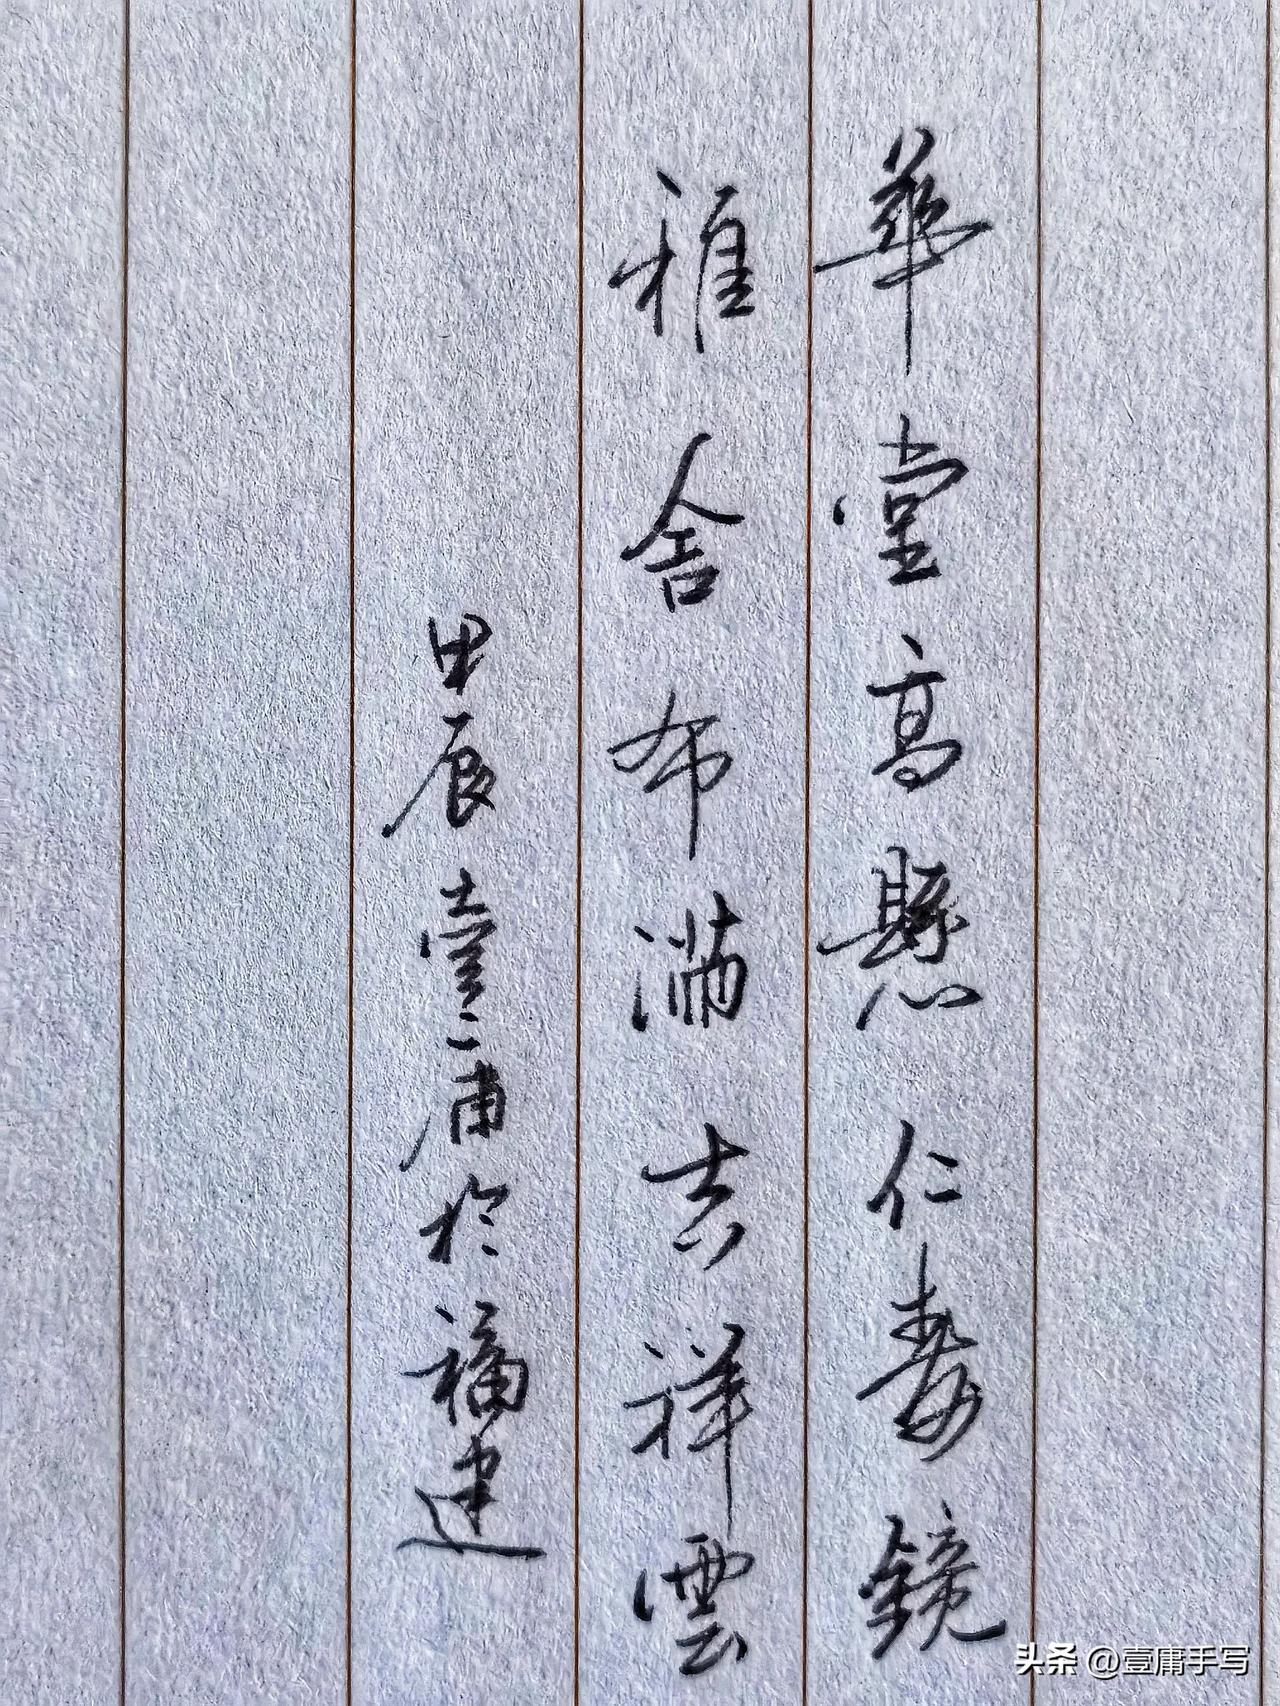 華堂高懸仁壽鏡
雅舍布滿吉祥雲
甲辰壹庸於福建
头条 @壹庸手写